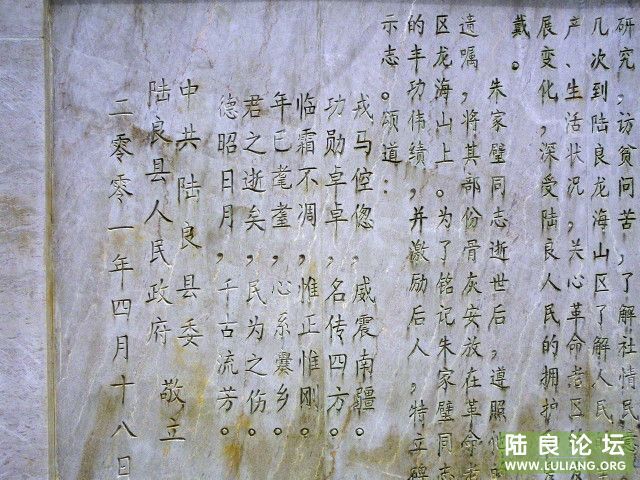 研究,访贫问苦,了解社情民
几次到陆良龙海山区了解人民
产、生活状况,关心革命老区
展变化,深受陆良人民的拥护
戴。
朱家璧同志逝世后,遵照
遗嘱,将其部份骨灰安放在革命老
区龙海山上。为了铭记朱家璧同志
的丰功伟绩,并激励后人,特立碑
示志。颂道:
戎马倥偬,威震南疆。
功勋卓卓,名传四方。
临霜不凋,惟正惟刚。
年已耄耋,心系爨乡。
君之逝矣,民为之伤。
德昭日月,千古流芳。
中共陆良县委
陆良县人民政府 敬立
二零零一年四月十八日
陆良论坛
WWW.LULIANG.ORG